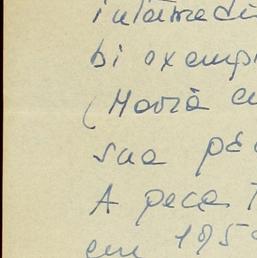 intermedi
bi exemp
(Maria e
sua pe
A peça
em 195